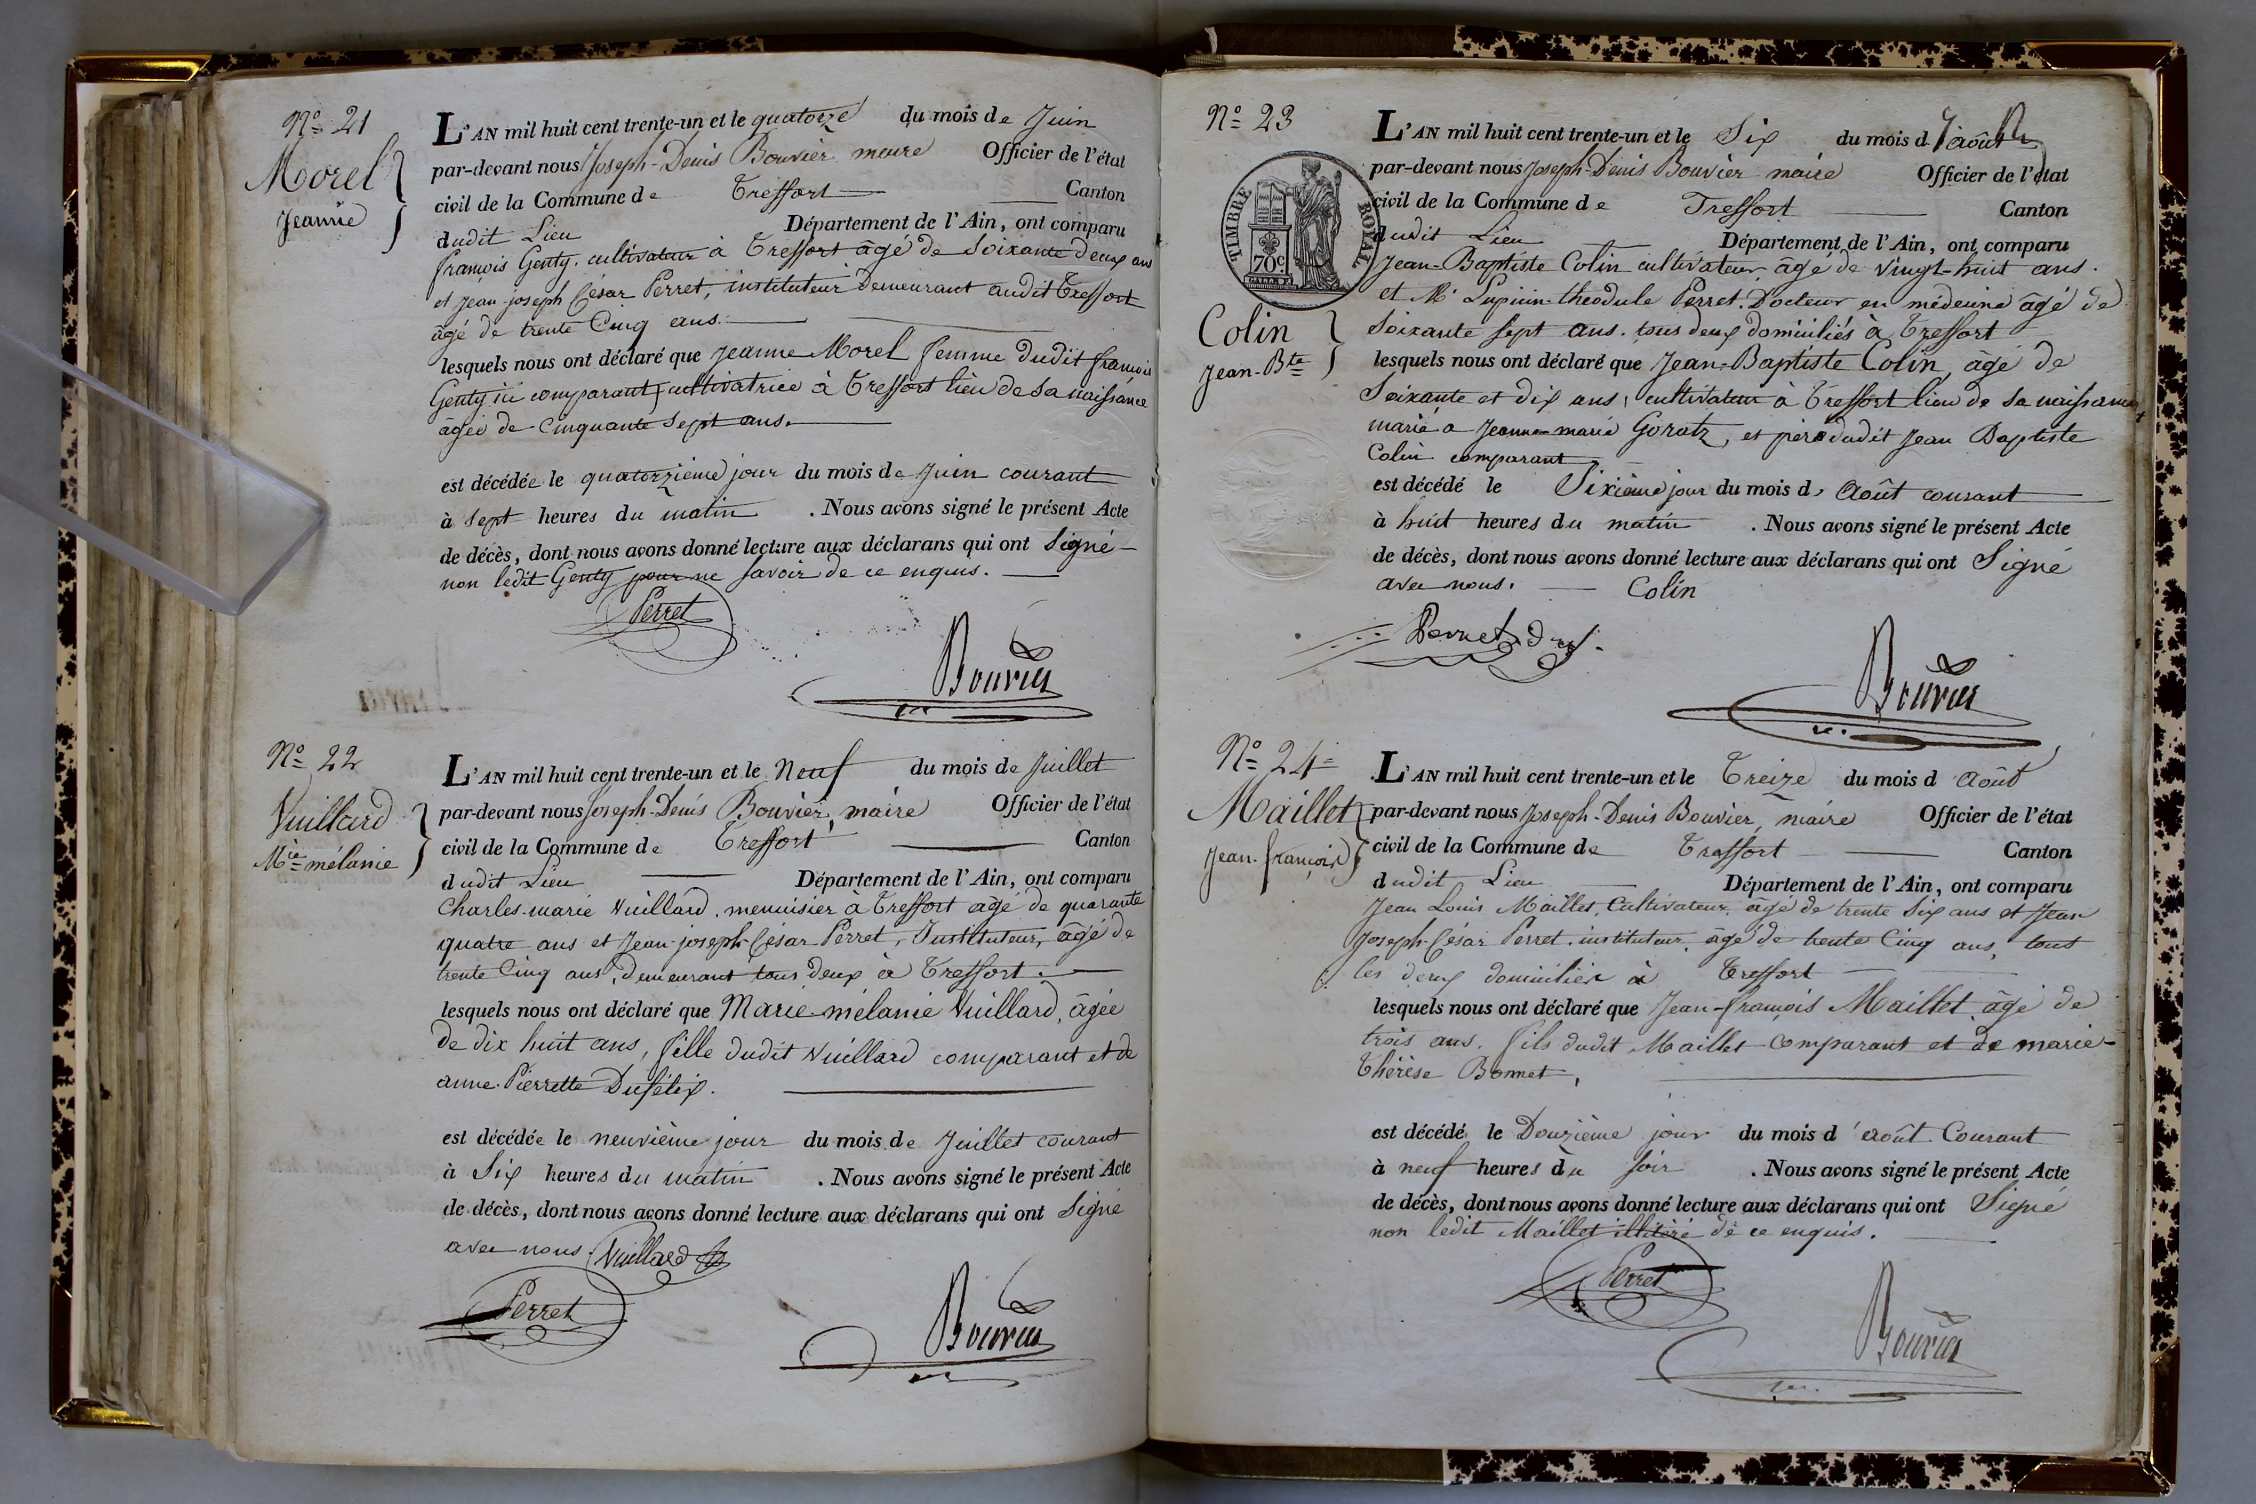 N° 21
Morel
Jeanne
L'AN mil huit cent trente-un et le quatorze du mois de Juin
par-devant nous Joseph-Denis Bouvier maire Officier de l'état
civil de la Commune de Treffort Canton
dudit Lieu Département de l'Ain, ont comparu
françois Genty, cultivateur à Treffort âgé de Soixante deux ans
et Jean-joseph César Perret, instituteur Demeurant audit Treffort
âgé de trente Cinq ans.
lesquels nous ont déclaré que Jeanne Morel femme dudit françois
Genty ici comparant, cultivatrice à Treffort lieu de sa naissance
âgée de Cinquante Sept ans.
est décédée le quatorzième jour du mois de Juin courant
à Sept heures du matin. Nous avons signé le présent Acte
de décès, dont nous avons donné lecture aux déclarans qui ont Signé
non ledit Genty pour ne savoir de ce enquis.
Perret
Bouvier
N° 22
Vuillard
Mie mélanie
L'AN mil huit cent trente-un et le Neuf du mois de Juillet
par-devant nous Joseph-Denis Bouvier, maire Officier de l'état
civil de la Commune de Treffort Canton
dudit Lieu Département de l'Ain, ont comparu
Charles-marie Vuillard, menuisier à Treffort âgé de quarante
quatre ans et Jean-joseph-César Perret, Instituteur, âgé de
trente Cinq ans, Demeurant tous deux à Treffort.
lesquels nous ont déclaré que Marie-mélanie Vuillard, âgée
De dix huit ans, fille dudit Vuillard comparant et de
anne-Pierrette Dufélix.
est décédée le neuvième jour du mois de Juillet courant
à Six heures du matin. Nous avons signé le présent Acte
de décès, dont nous avons donné lecture aux déclarans qui ont Signé
avec nous. Vuillard
Perret
Bouvier
N° 23
TIMBRE ROYAL
70c
Colin
Jean-Bte
L'AN mil huit cent trente-un et le Six du mois d'août
par-devant nous Joseph-Denis Bouvier maire Officier de l'état
civil de la Commune de Treffort Canton
dudit Lieu Département de l'Ain, ont comparu
Jean-Baptiste Colin cultivateur âgé de vingt-huit ans.
et Mr Lupicin-théodule Perret. Docteur en médecine âgé de
Soixante Sept ans. tous deux domiciliés à Treffort
lesquels nous ont déclaré que Jean-Baptiste Colin, âgé de
Soixante et dix ans, cultivateur à Treffort lieu de sa naissance
marié à Jeanne-marie Goratz, et père dudit Jean Baptiste
Colin comparant
est décédé le Sixième jour du mois d'Août courant
à huit heures du matin. Nous avons signé le présent Acte
de décès, dont nous avons donné lecture aux déclarans qui ont Signé
avec nous. Colin
Perret
Bouvier
N° 24
Maillet
Jean-françois
L'AN mil huit cent trente-un et le Treize du mois d Août
par-devant nous Joseph-Denis Bouvier, maire Officier de l'état
civil de la Commune de Treffort Canton
dudit Lieu Département de l'Ain, ont comparu
Jean Louis Maillet, Cultivateur, âgé de trente Six ans et Jean
Joseph-César Perret, instituteur, âgé de trente Cinq ans, tous
les deux domiciliés à Treffort
lesquels nous ont déclaré que Jean-françois Maillet âgé de
trois ans, fils dudit Maillet comparant et de marie-
Thérèse Bonnet,
est décédé le Douzième jour du mois d'août Courant
à neuf heures du soir. Nous avons signé le présent Acte
de décès, dont nous avons donné lecture aux déclarans qui ont Signé
non ledit Maillet illitéré de ce enquis.
Perret
Bouvier